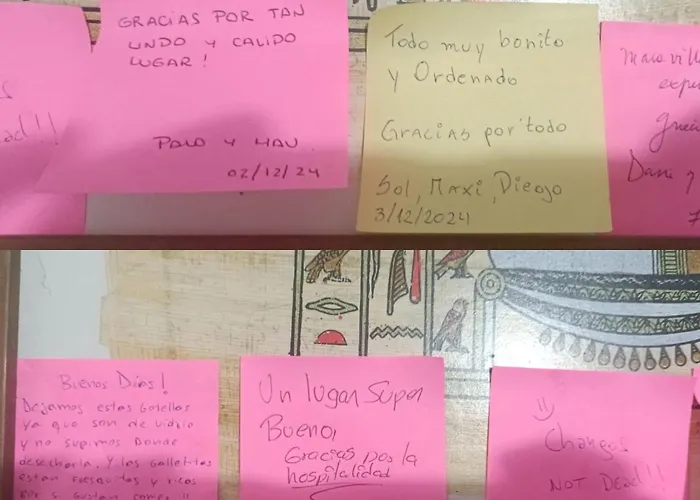 GRACIAS POR TAN
LINDO Y CALIDO
LUGAR!
02/12/24
Todo muy bonito
y Ordenado
Gracias por todo
Sol, Maxi, Diego
3/12/2024
Maravill
expe
Dani y
7
Buenos Días!
Dejamos estas botellas
ya que son de vidrio
y no supimos Donde
desecharla. Y las galletitas
estan fresquitas y ricas
por si gustan comer!!
Un lugar Super
Bueno,
Gracias por la
hospitalidad
Changes
NOT DEAD!!!